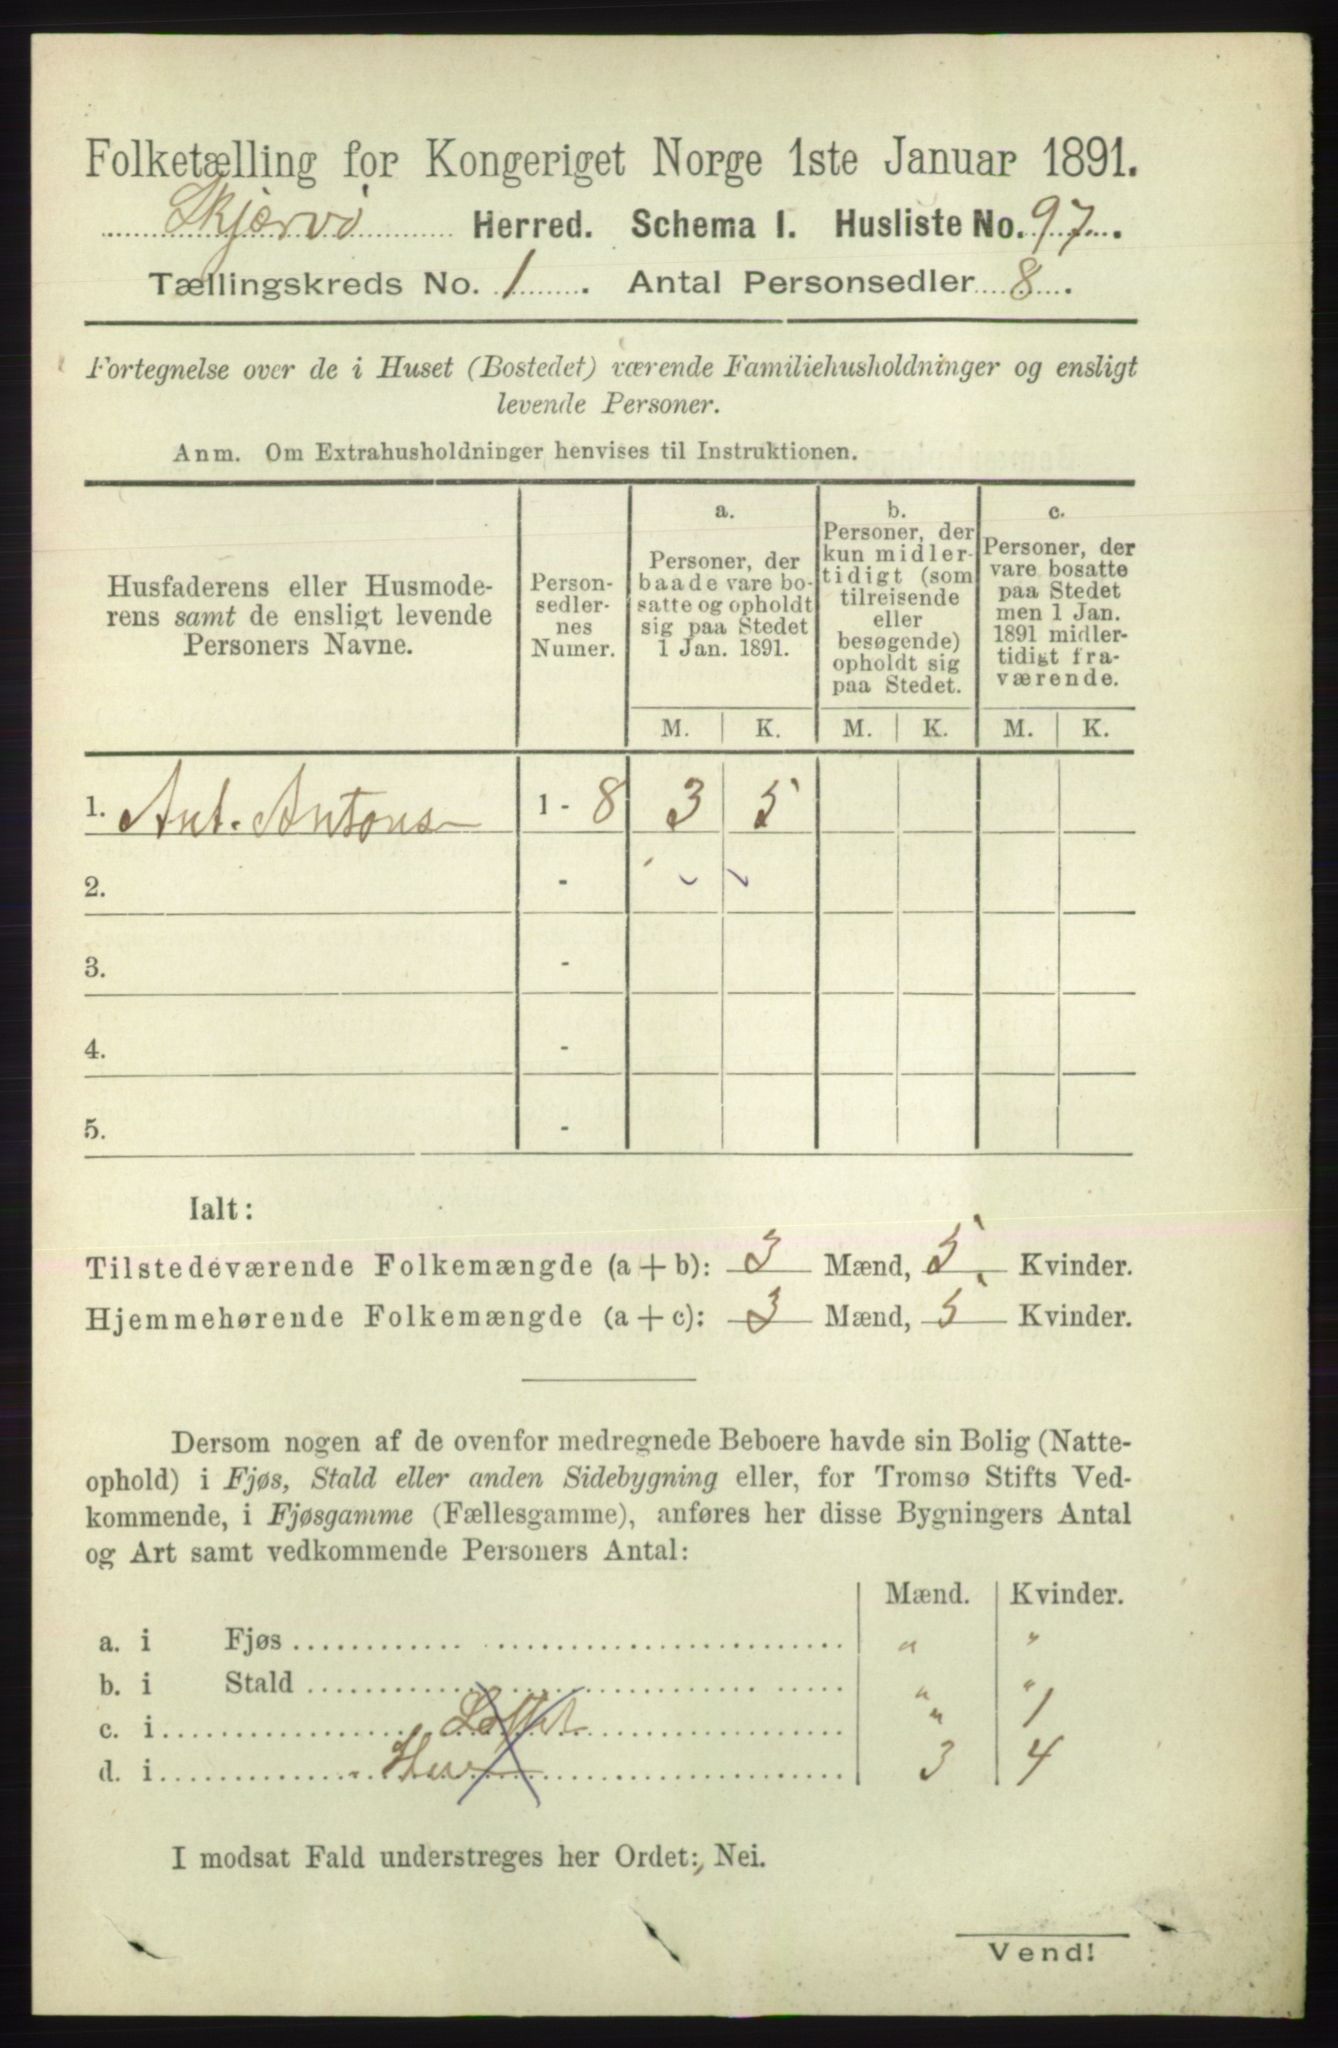 Folketælling for Kongeriget Norge 1ste Januar 1891.
Skjærvö Herred. Schema I. Husliste No. 97.
Tællingskreds No. 1. Antal Personsedler 8.
Fortegnelse over de i Huset (Bostedet) værende Familiehusholdninger og ensligt
levende Personer.
Anm. Om Extrahusholdninger henvises til Instruktionen.
Husfaderens eller Husmode-
rens samt de ensligt levende
Personers Navne.
Person-
sedler-
nes
Numer.
a.
Personer, der
baade vare bo-
satte og opholdt
sig paa Stedet
1 Jan. 1891.
b.
Personer, der
kun midler-
tidigt (som
tilreisende
eller
besøgende)
opholdt sig
paa Stedet.
c.
Personer, der
vare bosatte
paa Stedet
men 1 Jan.
1891 midler-
tidigt fra-
værende.
M. K. M. K. M. K.
1. Ant. Antons 1 - 8 3 5
2. -
3. -
4. -
5. -
Ialt:
Tilstedeværende Folkemængde (a + b): 3 Mænd, 5 Kvinder.
Hjemmehørende Folkemængde (a + c): 3 Mænd, 5 Kvinder.
Dersom nogen af de ovenfor medregnede Beboere havde sin Bolig (Natte-
ophold) i Fjøs, Stald eller anden Sidebygning eller, for Tromsø Stifts Ved-
kommende, i Fjøsgamme (Fællesgamme), anføres her disse Bygningers Antal
og Art samt vedkommende Personers Antal:
Mænd. Kvinder.
a. i Fjøs " "
b. i Stald " "
c. i Loftet " 1
d. i Hus 3 4
I modsat Fald understreges her Ordet: Nei.
Vend!